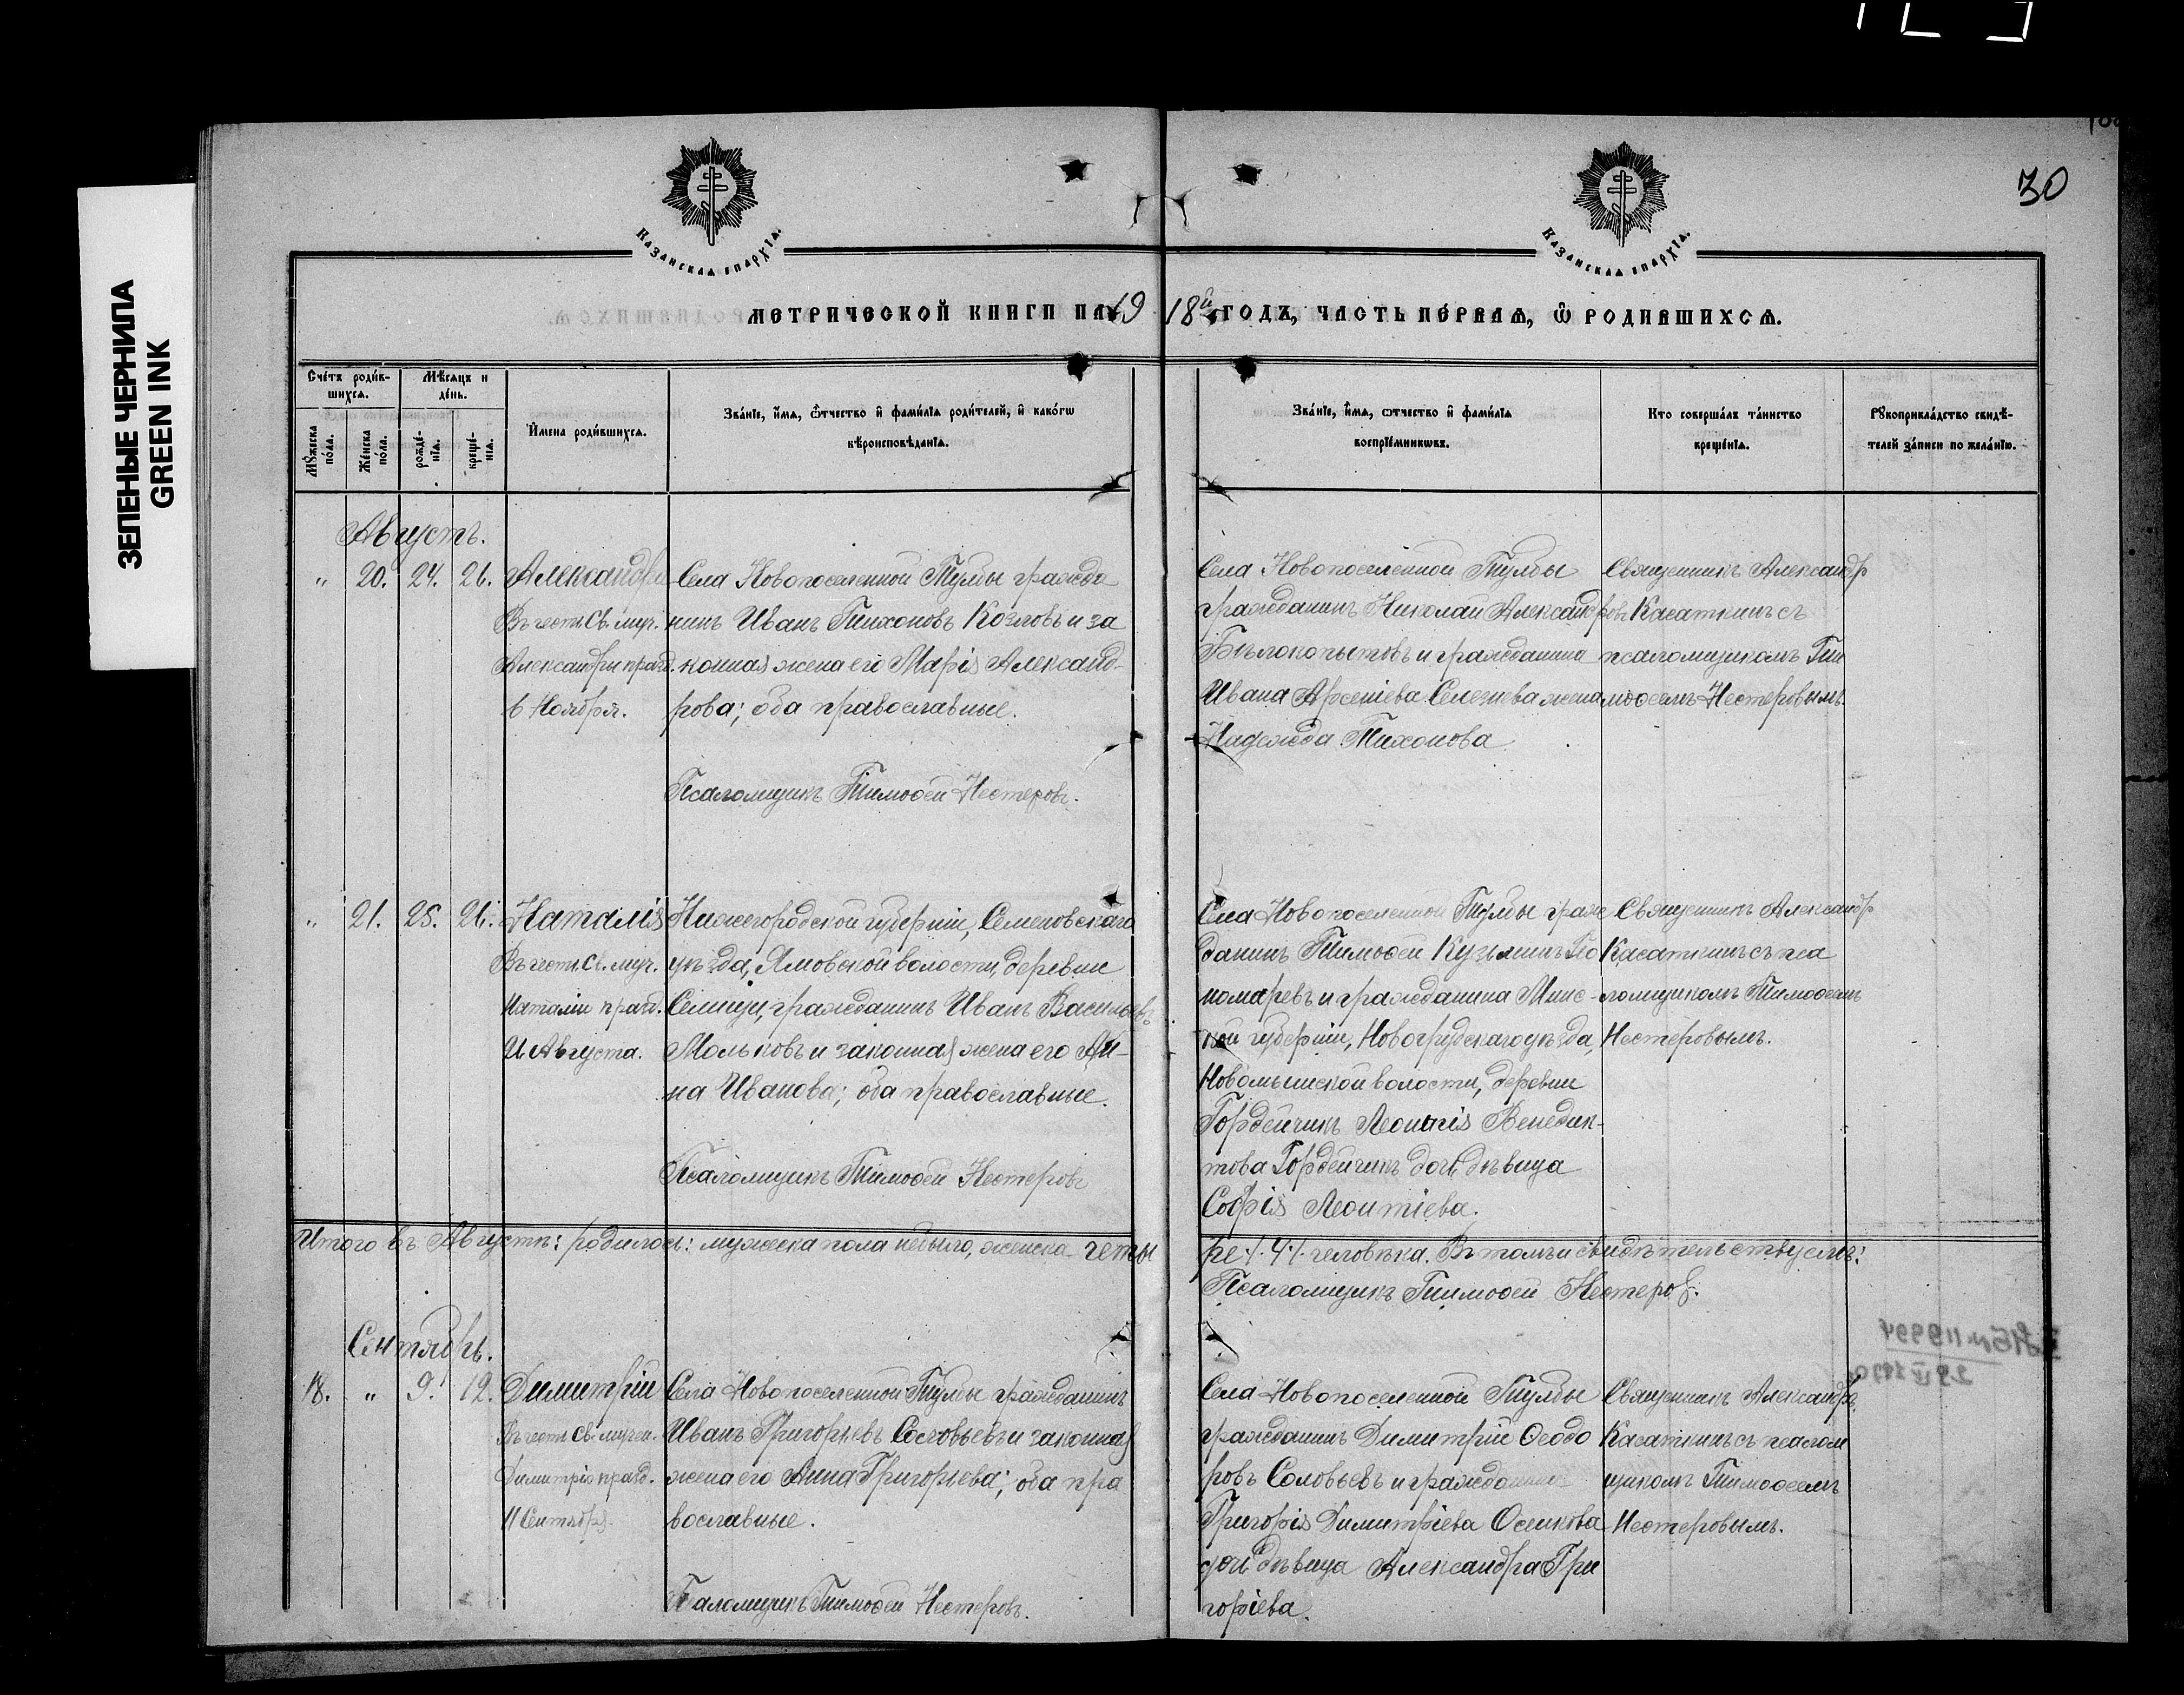 ЗЕЛЕНЫЕ ЧЕРНИЛА
GREEN INK
30
Казанская епархїѧ.
Казанская епархїѧ.
МЕТРИЧЕСКОЙ КНИГИ НА 19
18й ГОДЪ, ЧАСТЬ ПЕРВАЯ, Ѿ РОДИВШИХСЯ.
Счетъ родив-
шихся.
Мѣсяцъ и
день.
Мужеска
пола.
Женска
пола.
рожде-
нїя.
креще-
нїя.
Имена родившихся.
Званїе, имя, отчество и фамилїя родителей, и какогѡ
вѣроисповѣданїя.
Званїе, имя, отчество и фамилїя
воспрїемникѡвъ.
Кто совершалъ таинство
крещенїя.
Рукоприкладство свидѣ-
телей записи по желанїю.
Августъ.
" 20. 24. 26. Александра
Въ честь Св. муч.
Александры празд.
6 Ноября.
Села Новопоселенной Тумбы гражда
нинъ Иванъ Тихоновъ Козловъ и за
конная жена его Марія Александ-
рова; оба православные.
Псаломщикъ Тимоѳей Нестеровъ.
Села Новопоселенной Тумбы
гражданинъ Николай Александровъ
Бѣлокопытовъ и гражданина
Ивана Арсеніева Селезнева жена
Надежда Тихонова
Священникъ Александр
Касаткинъ съ
псаломщикомъ Тим
моѳеемъ Нестеровымъ.
" 21. 25. 26. Наталія
Въ честь Св. муч.
Наталіи празд.
26 Августа.
Нижегородской губерніи, Семеновскаго
уѣзда, Ямовской волости, деревни
Селищи, гражданинъ Иванъ Васильевъ
Мольковъ и законная жена его Ан-
на Иванова; оба православные.
Псаломщикъ Тимоѳей Нестеровъ
Села Новопоселенной Тумбы граж
данинъ Тимоѳей Кузьминъ По
номаревъ и гражданина Минс-
кой губерніи, Новогрудскаго уѣзда,
Новомышской волости, деревни
Гордейчикъ Леонтія Венедик-
това Гордейчикъ дочь дѣвица
Софія Леонтіева.
Священникъ Александр
Касаткинъ съ пса
ломщикомъ Тимоѳеемъ
Нестеровымъ.
Итого въ Августѣ: родилось: мужеска пола небыло, женска четы
ре ./. 4 ./. человѣка. Въ томъ и свидѣтельствуемъ:
Псаломщикъ Тимоѳей Нестеровъ.
Сентябрь.
18. " 9. 12. Димитрій
Въ честь Св. мучен.
Димитрія празд.
11 Сентября.
Села Новопоселенной Тумбы гражданинъ
Иванъ Григорьевъ Соловьевъ и законная
жена его Анна Григорьева; оба пра
вославные.
Псаломщикъ Тимоѳей Нестеровъ.
Села Новопоселенной Тумбы
гражданинъ Димитрій Ѳеодо
ровъ Соловьевъ и гражданина
Григорія Димитріева Осипова
дочь дѣвица Александра Гри
горіева.
Священникъ Александръ
Касаткинъ съ псалом
щикомъ Тимоѳеемъ
Нестеровымъ.